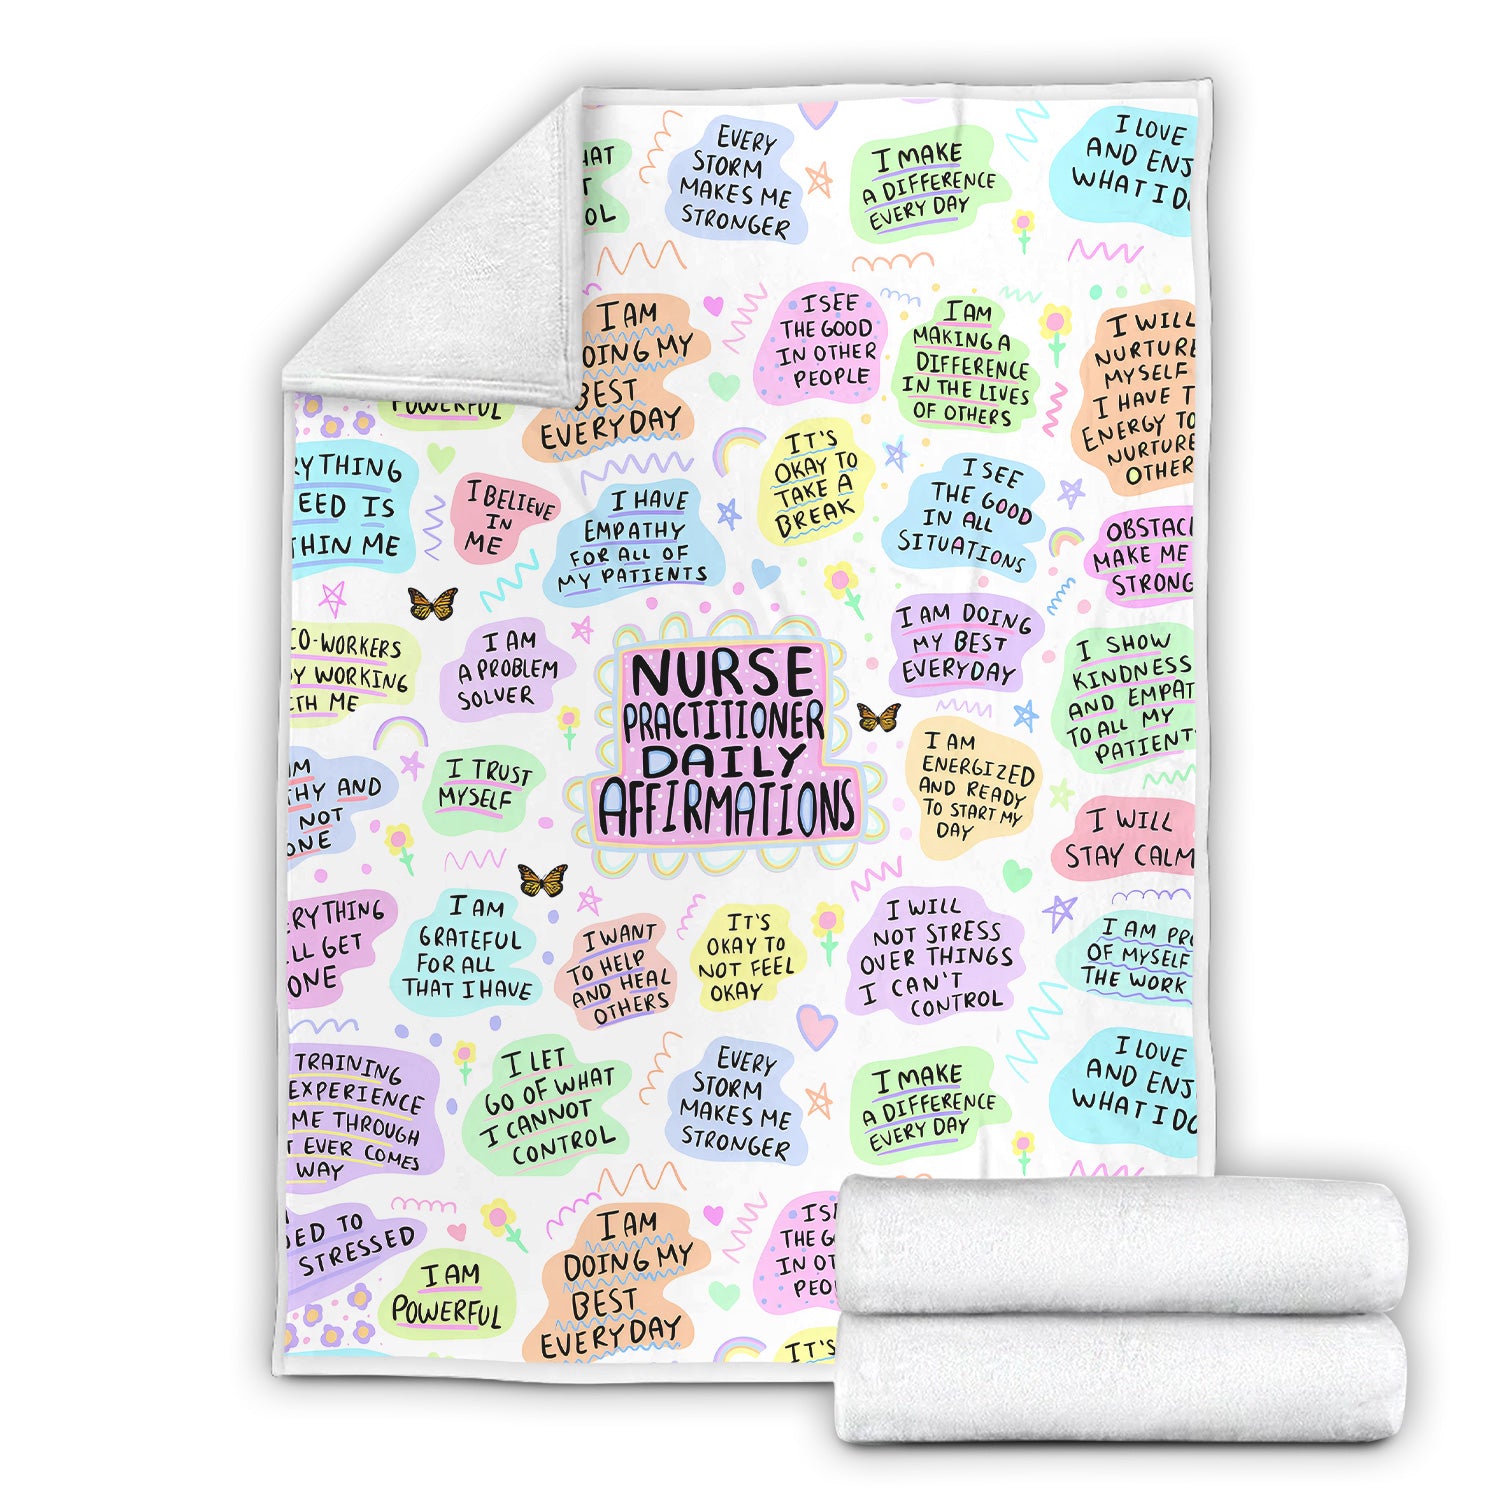 EVERY
STORM
MAKES ME
STRONGER
I MAKE
A DIFFERENCE
EVERY DAY
I LOVE
AND ENJ
WHAT I D
HAT
T
OL
I AM
OING MY
BEST
EVERYDAY
I SEE
THE GOOD
IN OTHER
PEOPLE
I AM
MAKING A
DIFFERENCE
IN THE LIVES
OF OTHERS
I WILL
NURTURE
MYSELF
I HAVE T
ENERGY TO
NURTURE
OTHER
POWERFUL
RYTHING
EED IS
THIN ME
I BELIEVE
IN
ME
I HAVE
EMPATHY
FOR ALL OF
MY PATIENTS
IT'S
OKAY TO
TAKE A
BREAK
I SEE
THE GOOD
IN ALL
SITUATIONS
OBSTACL
MAKE ME
STRONG
CO-WORKERS
Y WORKING
ITH ME
I AM
A PROBLEM
SOLVER
NURSE
PRACTITIONER
DAILY
AFFIRMATIONS
I AM DOING
MY BEST
EVERYDAY
I SHOW
KINDNESS
AND EMPAT
TO ALL MY
PATIENT
AM
THY AND
NOT
ONE
I TRUST
MYSELF
I AM
ENERGIZED
AND READY
TO START MY
DAY
I WILL
STAY CALM
ERYTHING
LL GET
ONE
I AM
GRATEFUL
FOR ALL
THAT I HAVE
I WANT
TO HELP
AND HEAL
OTHERS
IT'S
OKAY TO
NOT FEEL
OKAY
I WILL
NOT STRESS
OVER THINGS
I CAN'T
CONTROL
I AM PRO
OF MYSELF
THE WORK
TRAINING
EXPERIENCE
ME THROUGH
T EVER COMES
WAY
I LET
GO OF WHAT
I CANNOT
CONTROL
EVERY
STORM
MAKES ME
STRONGER
I MAKE
A DIFFERENCE
EVERY DAY
I LOVE
AND ENJ
WHAT I DO
ED TO
STRESSED
I AM
POWERFUL
I AM
DOING MY
BEST
EVERYDAY
I SE
THE G
IN OT
PEO
IT'S